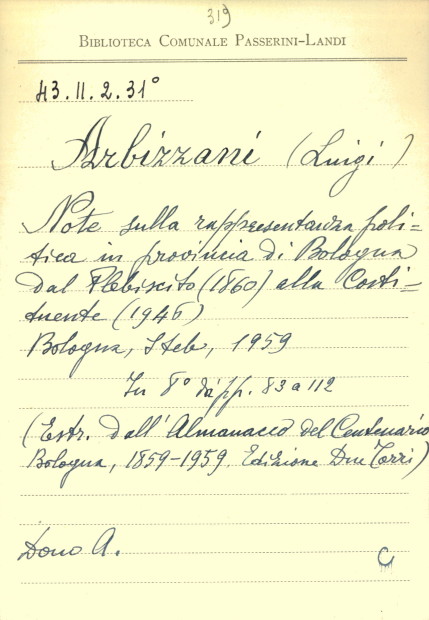 319
BIBLIOTECA COMUNALE PASSERINI-LANDI
43.II.2.31°
Arbizzani (Luigi)
Note sulla rappresentanza poli-
tica in provincia di Bologna
dal Plebiscito (1860) alla Costi-
tuente (1946)
Bologna, Steb, 1959
In 8° da pp. 83 a 112
(Estr. dall'Almanacco del Centenario
Bologna, 1859-1959. Edizione Due Torri)
Dono A.
C